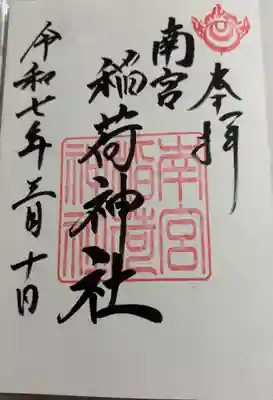 奉拝
南宮
稲荷神社
令和七年三月十日
南宮
稲荷
神社